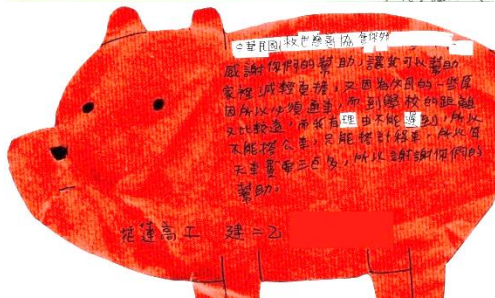 中華民國救世慈善協會你好
感謝你們的幫助，讓我可以幫助
家裡減輕負擔，又因為的一些原
因所以必須通車，而到學校的距離
又比較遠，而我有理由不能遲到，所以
不能搭公車，只能搭計程車，所以每
天車費要三百多，所以謝謝你們的
幫助。
花蓮高工 建二乙